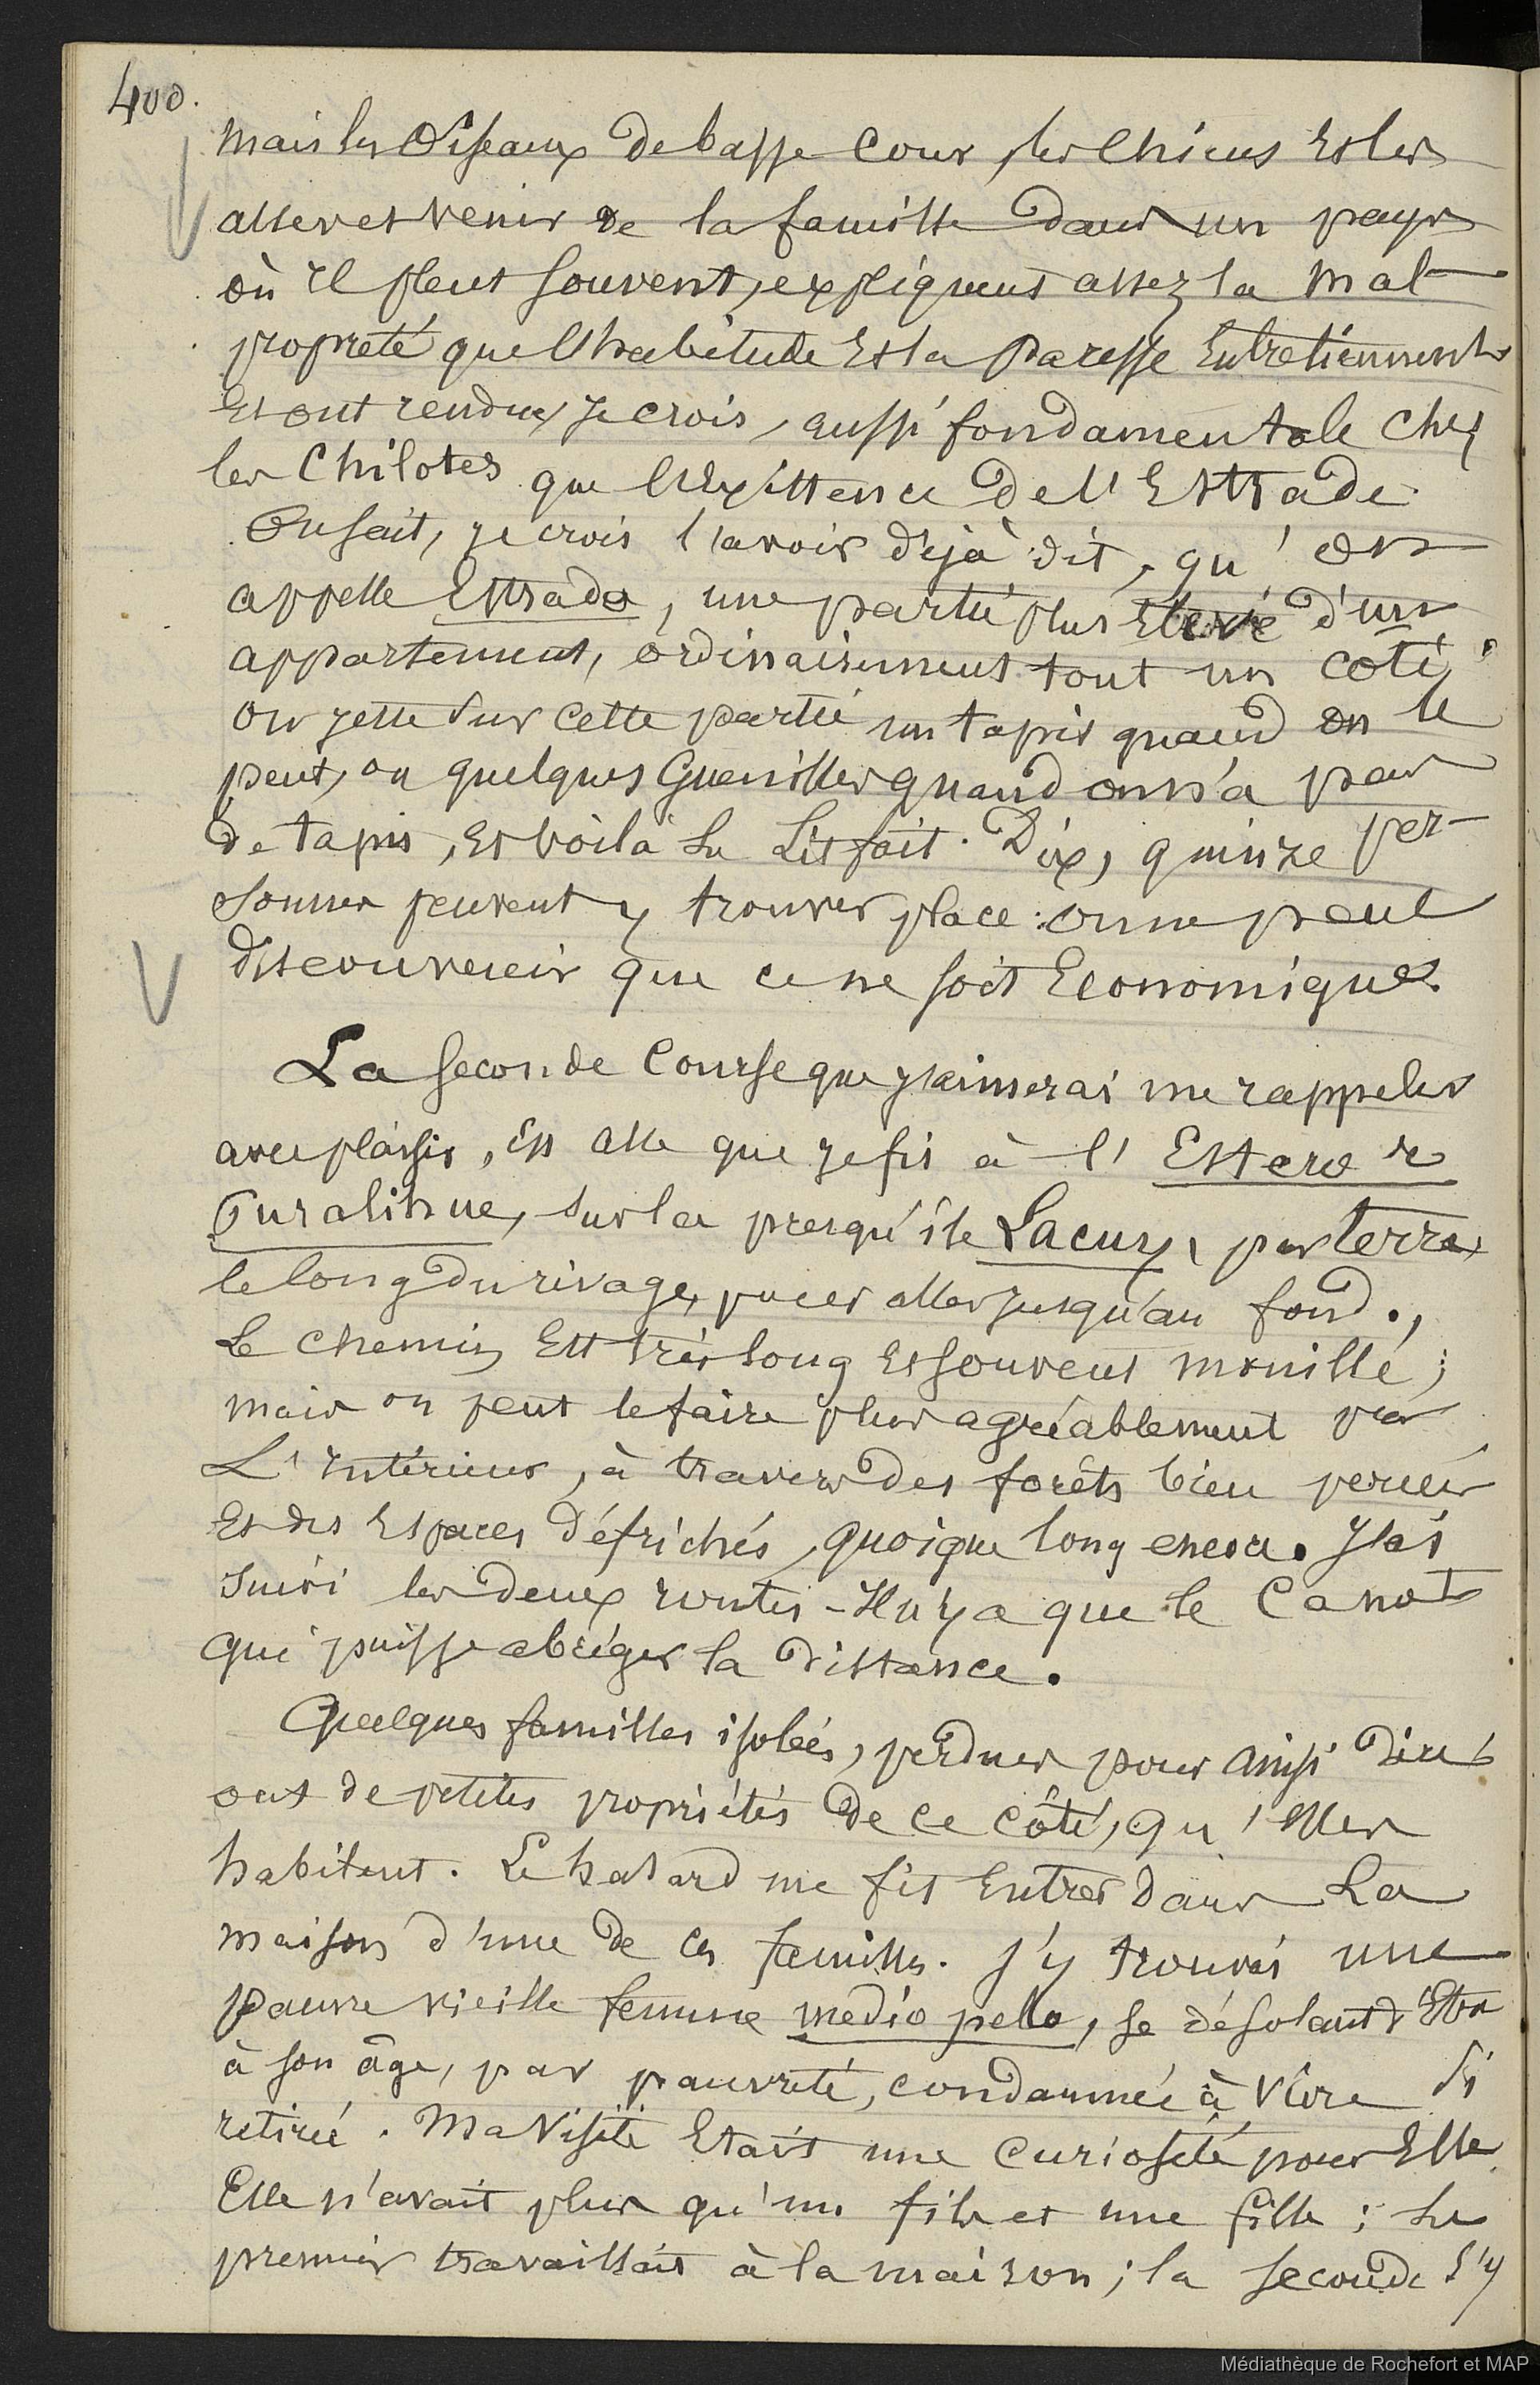 400.
mais les Oiseaux de basse Cour, les chiens et les
aller et venir de la famille dans un pays
où il pleut souvent, expliquent assez la mal
propreté que l'habitude et la paresse entretiennent
et ont rendue, je crois, aussi fondamentale chez
les Chilotes que l'existence de l'Estrade.
On sait, je crois l'avoir déjà dit, qu'on
appelle Estrade, une partie plus élevée d'un
appartement, ordinairement tout un coté;
on jette sur cette partie un tapis quand on le
peut, ou quelques Guenilles quand on n'a pas
de tapis, et voilà le Lit fait. Dix, quinze per-
sonnes peuvent y trouver place: on ne peut
disconvenir que ce ne soit Economique.
La seconde Course que j'aimerai me rappeler
avec plaisir, est celle que je fis à l'Estero
Puralihue, sur la presqu'île Lacuy, par terre,
le long du rivage, pour aller jusqu'au fond.,
Le chemin est très long et souvent mouillé;
mais on peut le faire plus agréablement par
L'intérieur, à travers des forêts bien percées
et des Espaces défrichés, quoique long encore. J'ai
suivi les deux routes - Il n'y a que le Canot
qui puisse abréger la distance.
Quelques familles isolées, perdues pour ainsi dire
ont de petites propriétés de ce côté, qu'elles
habitent. Le hasard me fit entrer dans La
maison d'une de ces familles. J'y trouvai une
pauvre vieille femme medio pelo, se désolant d'être
à son âge, par pauvreté, condamnée à vivre si
retirée. Ma Visite était une curiosité pour Elle.
Elle n'avait plus qu'un fils et une fille; le
premier travaillait à la maison; la seconde s'y
Médiathèque de Rochefort et MAP